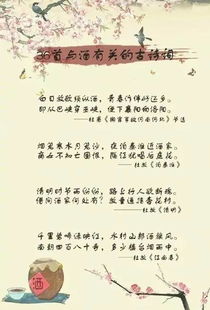 36首与酒有关的古诗词
白日放歌须纵酒，青春作伴好还乡。
即从巴峡穿巫峡，便下襄阳向洛阳。
——杜甫《闻官军收河南河北》节选
烟笼寒水月笼沙，夜泊秦淮近酒家。
商女不知亡国恨，隔江犹唱后庭花。
——杜牧《泊秦淮》
清明时节雨纷纷，路上行人欲断魂。
借问酒家何处有？牧童遥指杏花村。
——杜牧《清明》
千里莺啼绿映红，水村山郭酒旗风。
南朝四百八十寺，多少楼台烟雨中。
——杜牧《江南春》
酒